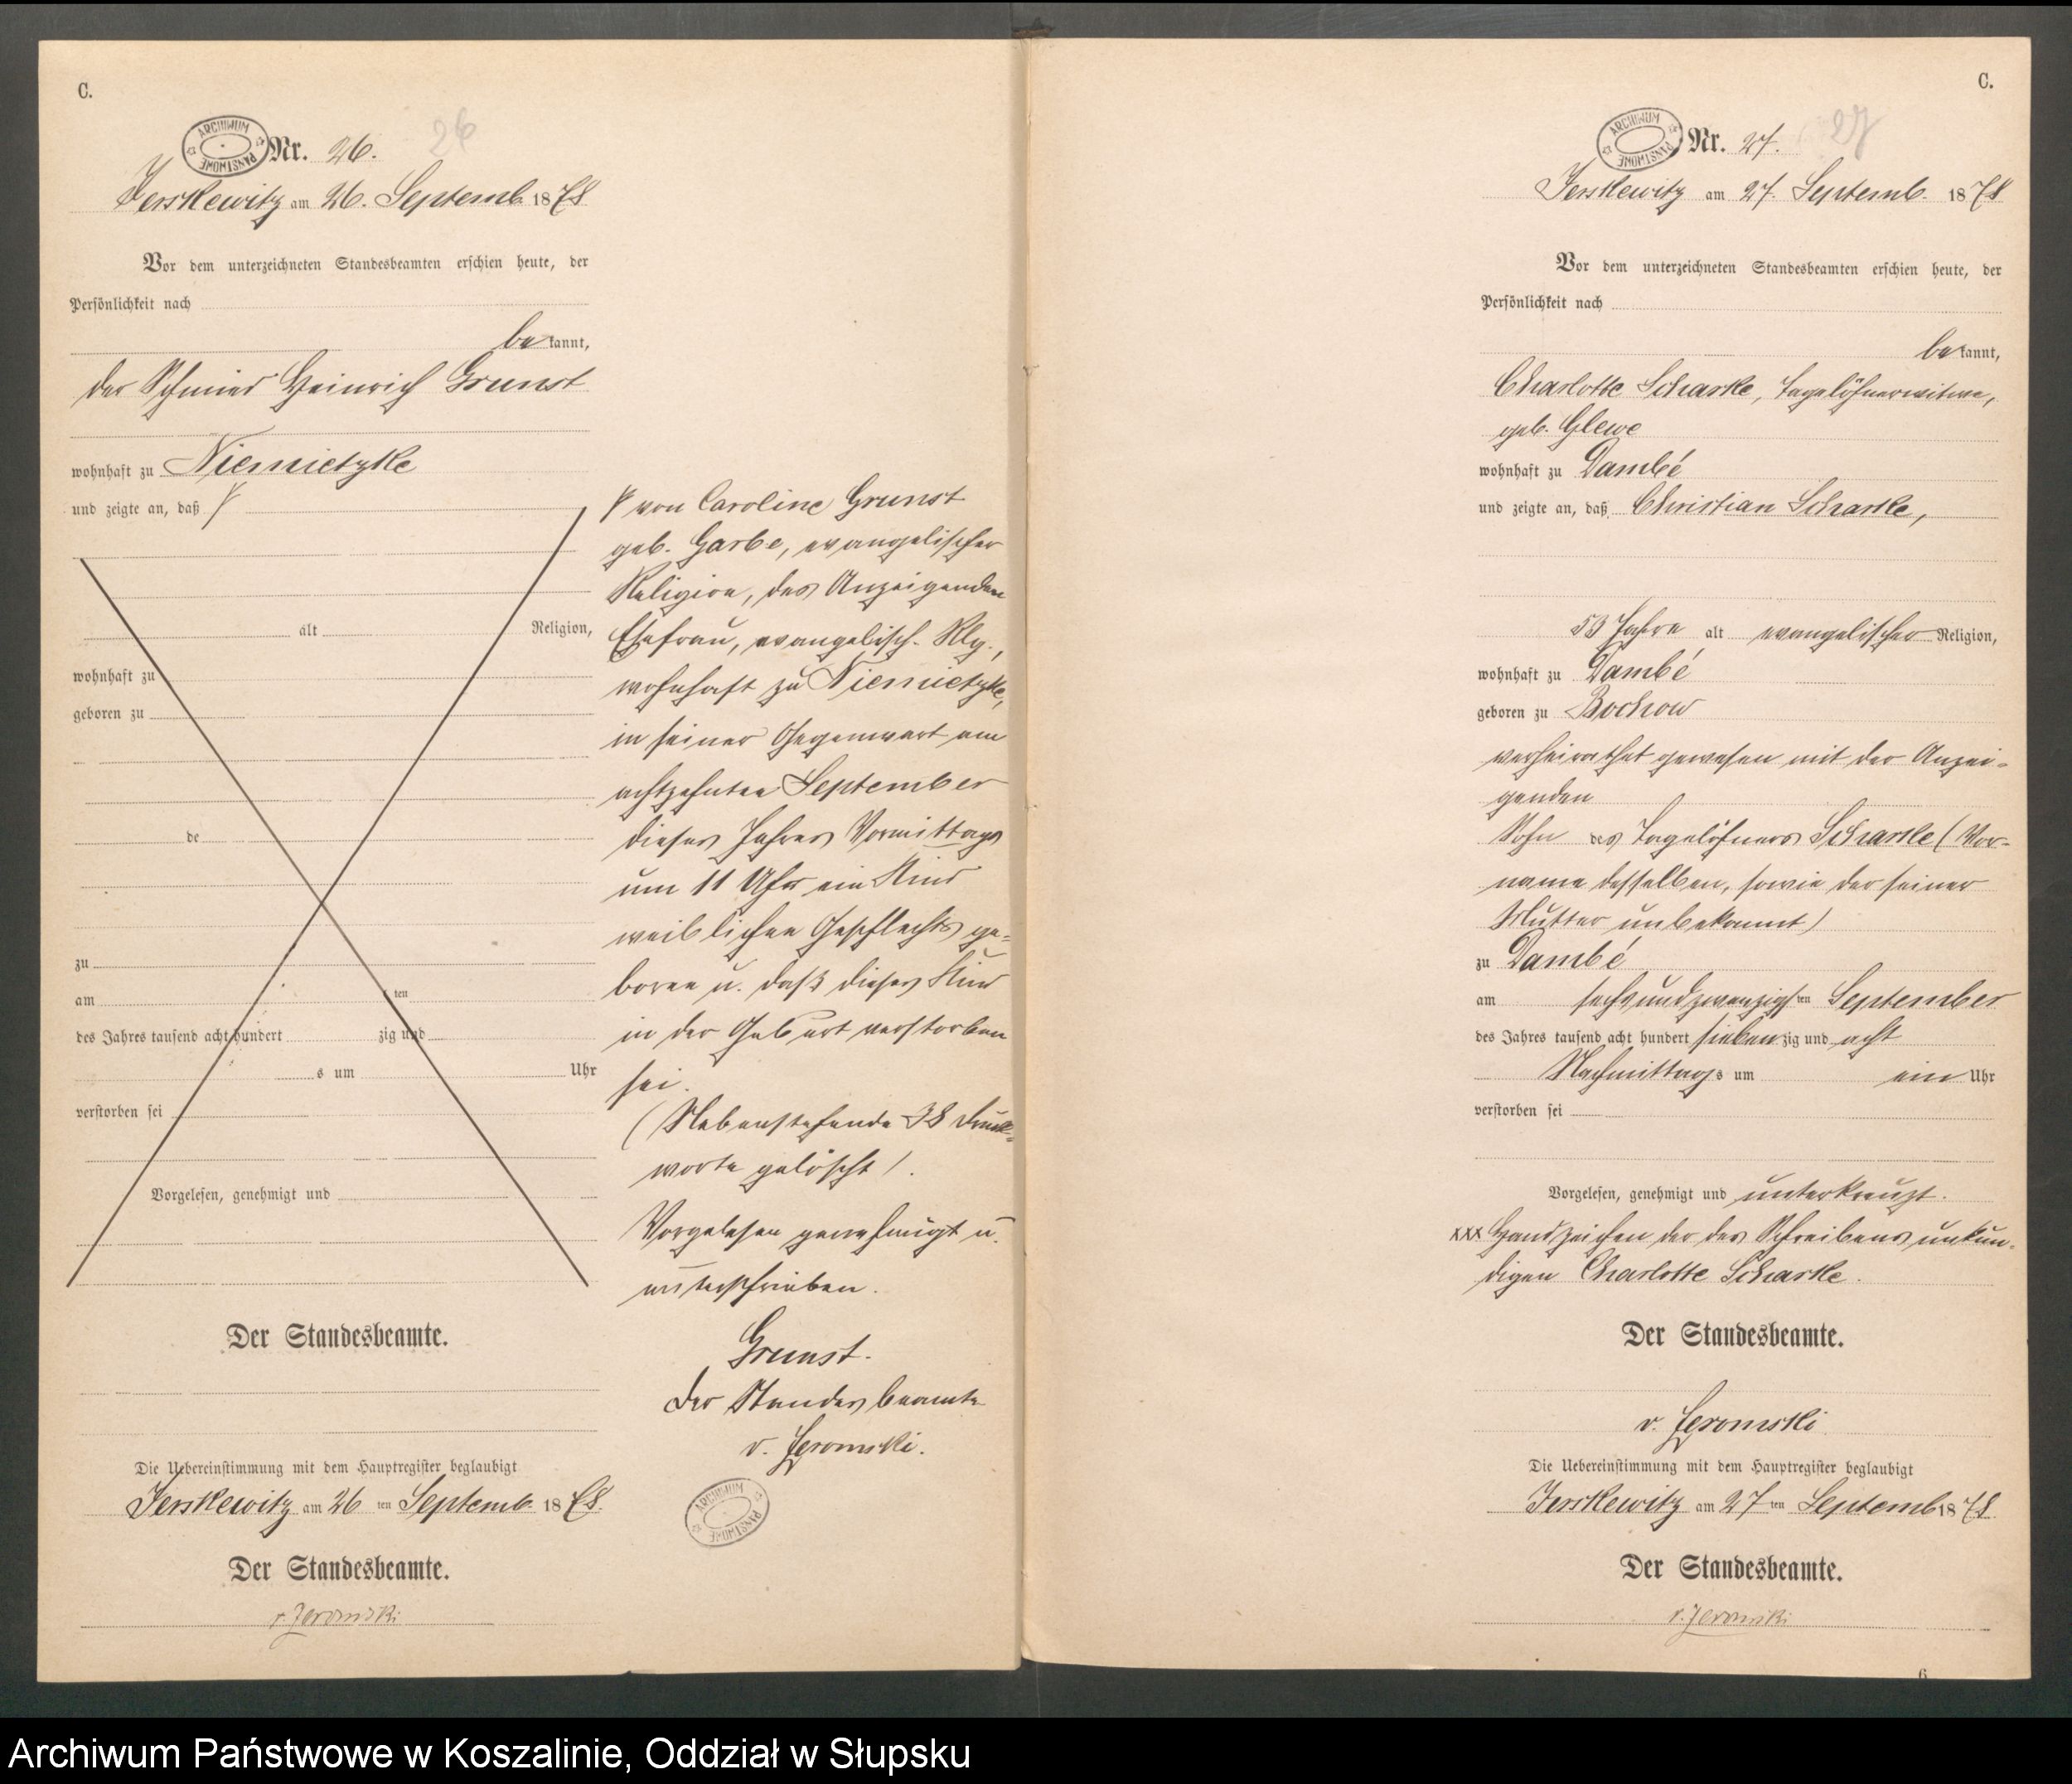 C.
ARCHIWUM PAŃSTWOWE
Nr. 26.
26
Jerskewitz am 26. Septemb. 1878
Vor dem unterzeichneten Standesbeamten erschien heute, der
Persönlichkeit nach
bekannt,
der Schmied Heinrich Grunst
wohnhaft zu Niemietzke
und zeigte an, daß
alt Religion,
wohnhaft zu
geboren zu
de
zu
am ten
des Jahres tausend acht hundert zig und
s um Uhr
verstorben sei
Vorgelesen, genehmigt und
Der Standesbeamte.
Die Uebereinstimmung mit dem Hauptregister beglaubigt
Jerskewitz am 26 ten Septemb. 1878.
Der Standesbeamte.
v. Jeromski
von Caroline Grunst
geb. Garbe, evangelischer
Religion, des Anzeigenden
Ehefrau, evangelisch. Rlg.,
wohnhaft zu Niemietzke,
in seiner Gegenwart am
achtzehnten September
dieses Jahres Vormittags
um 11 Uhr ein Kind
weiblichen Geschlechts ge-
boren u. daß dieses Kind
in der Geburt verstorben
sei.
(Nebenstehende 38 Druck-
worte gelöscht).
Vorgelesen genehmigt u.
unterschrieben.
Grunst.
Der Standesbeamte
v. Jeromski.
ARCHIWUM PAŃSTWOWE
C.
ARCHIWUM PAŃSTWOWE
Nr. 27.
27
Jerskewitz am 27. Septemb. 1878
Vor dem unterzeichneten Standesbeamten erschien heute, der
Persönlichkeit nach
bekannt,
Charlotte Scharke, Tagelöhnerwitwe,
geb. Glewe
wohnhaft zu Dambé
und zeigte an, daß Christian Scharke,
53 Jahre alt evangelischer Religion,
wohnhaft zu Dambé
geboren zu Bochow
verheirathet gewesen mit der Anzei-
genden
Sohn des Tagelöhners Scharke (Vor-
name desselben, sowie der seiner
Mutter unbekannt)
zu Dambé
am sechsundzwanzigsten September
des Jahres tausend acht hundert siebenzig und acht
Nachmittags um ein Uhr
verstorben sei
Vorgelesen, genehmigt und unterkreuzt.
xxx Handzeichen der des Schreibens unkun-
digen Charlotte Scharke.
Der Standesbeamte.
v. Jeromski
Die Uebereinstimmung mit dem Hauptregister beglaubigt
Jerskewitz am 27 ten Septemb 1878
Der Standesbeamte.
v. Jeromski
6
Archiwum Państwowe w Koszalinie, Oddział w Słupsku